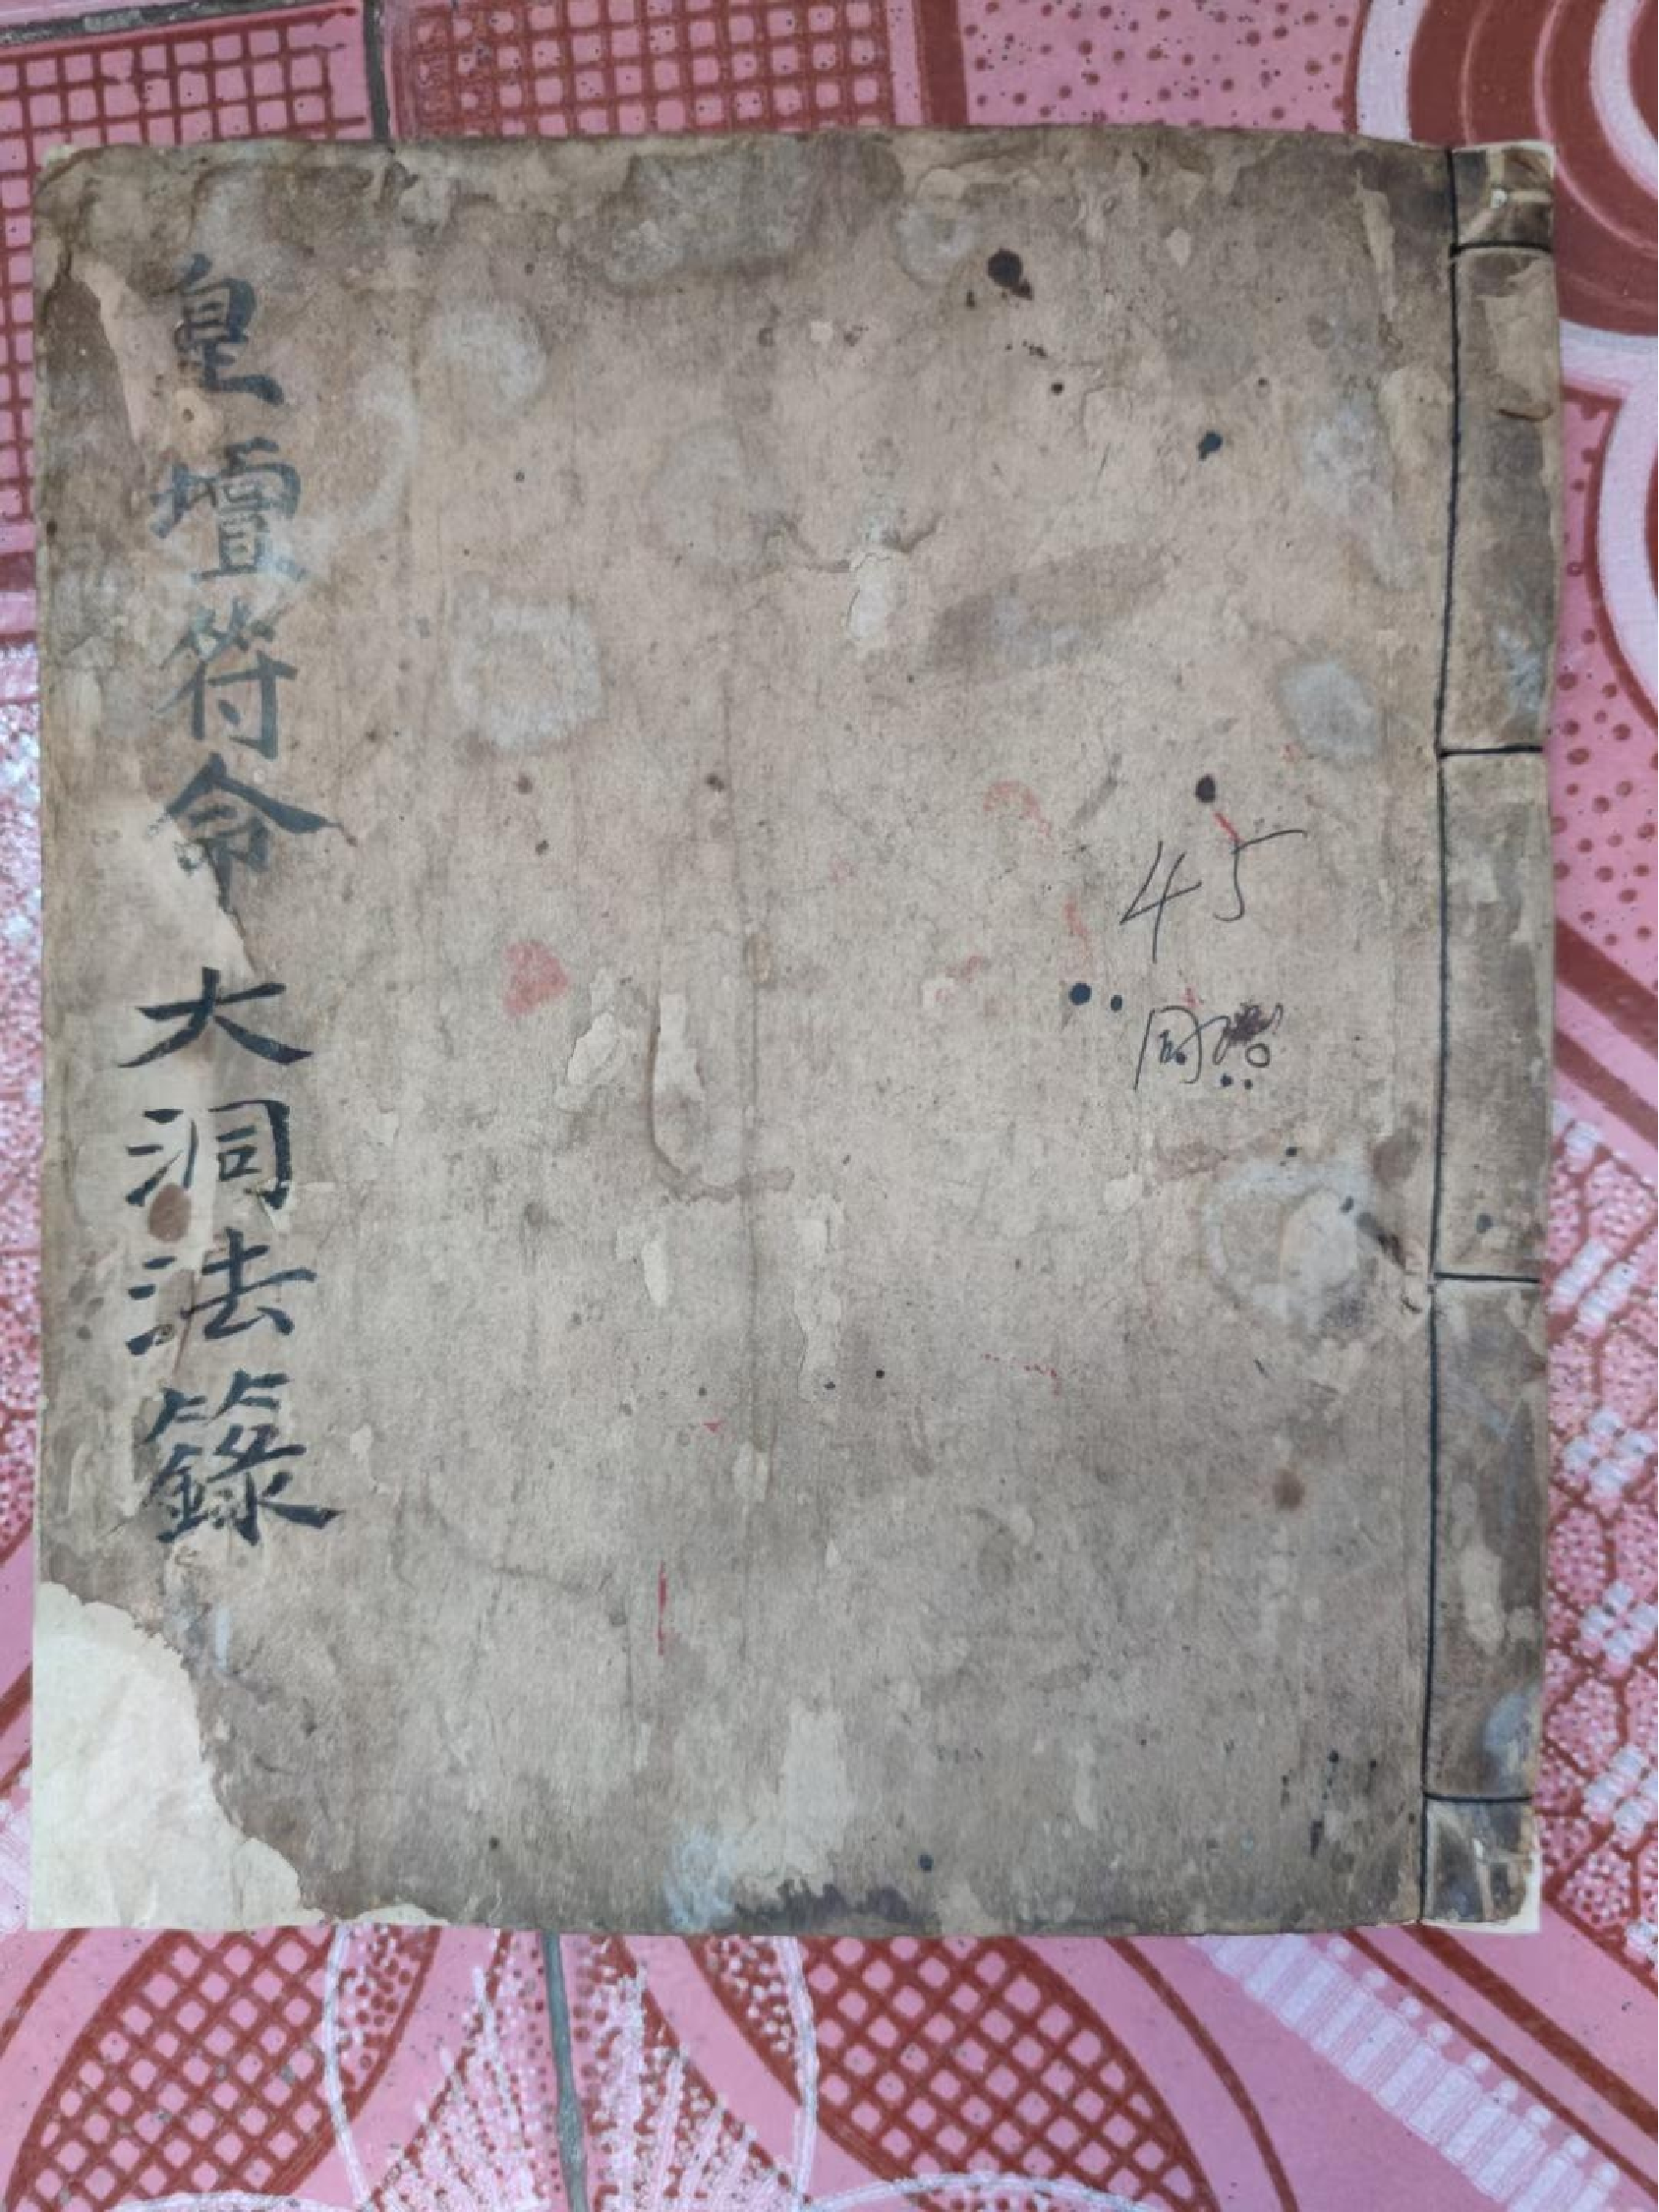 皇壇符命 大洞法籙
45